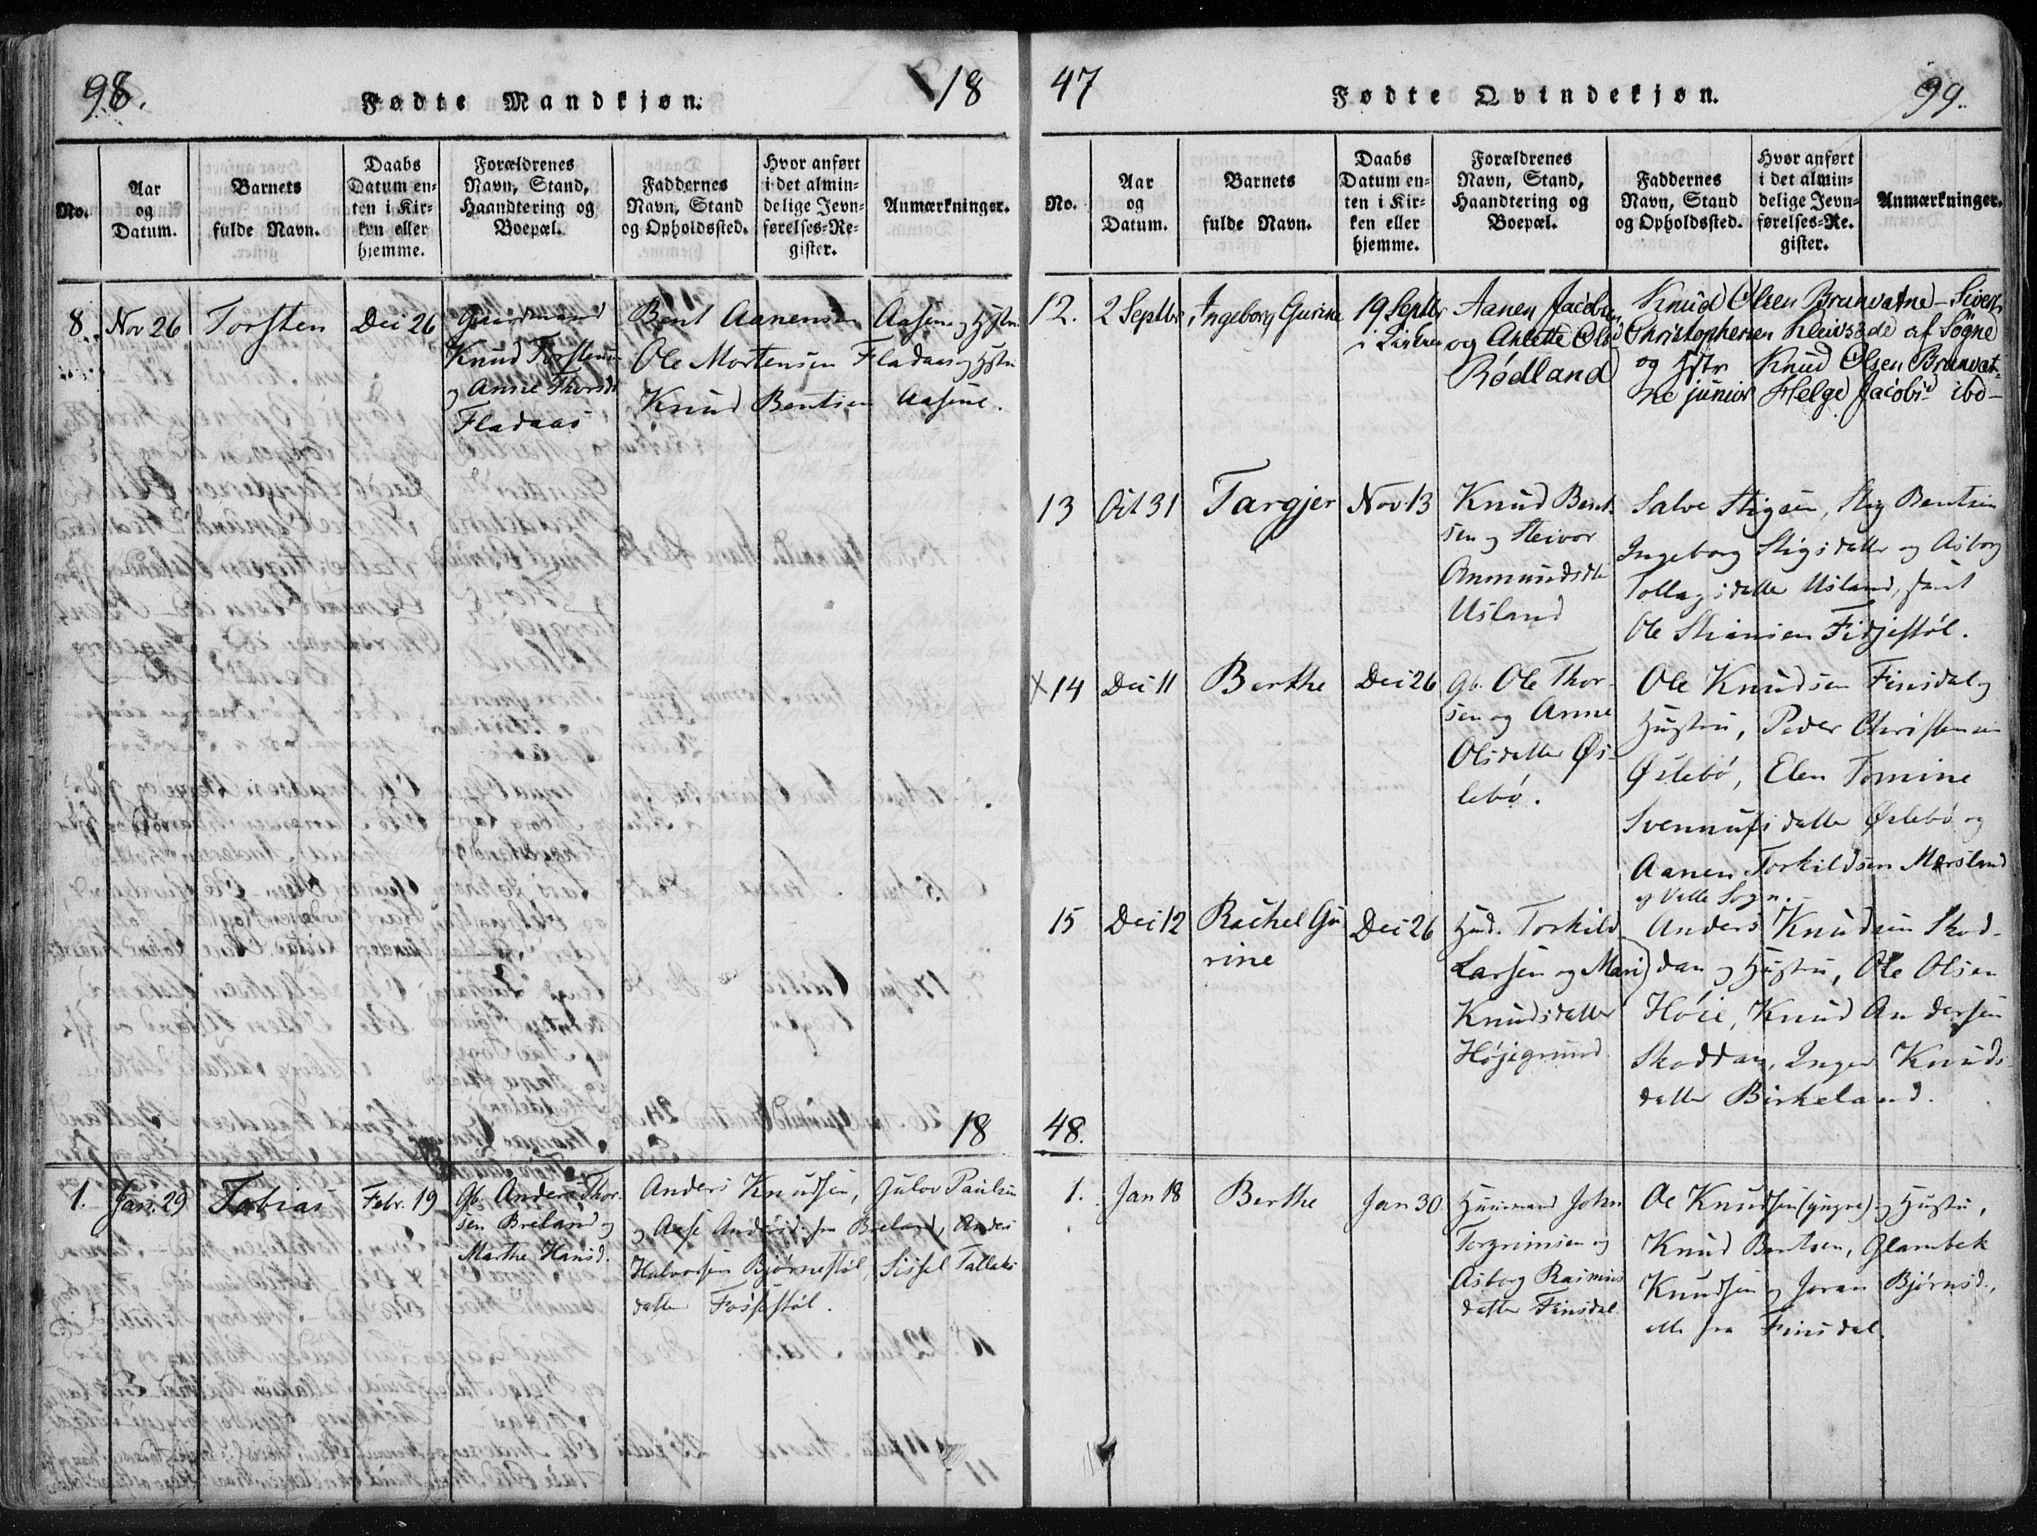 98.
Fødte Mandkjøn.
18
No.
Aar
og
Datum.
Barnets
fulde Navn.
Daabs
Datum en-
ten i Kir-
ken eller
hjemme.
Forældrenes
Navn, Stand,
Haandtering og
Boepæl.
Faddernes
Navn, Stand
og Opholdssted.
Hvor anført
i det almin-
delige Jevn-
førelses-Re-
gister.
Anmærkninger.
8.
Nov 26
Torsten
Dec 26
Gaardmand
Knud Torstensen
og Anne Thorsd.
Fladaas
Bent Aanensen Aasene og Hstru
Ole Mortensen Fladaas og Hstru
Knud Bentsen Aasene.
18
1.
Jan. 29
Tobias
Febr. 19
Gb. Anders Thor-
sen Breland og
Marthe Hansd.
Anders Knudsen, Gulov Paulsen
og Aase Andersd. fra Breland, Anders
Halvorsen Bjørnestøl, Sissel Tallaks
datter Fossestøl.
47
Fødte Qvindekjøn.
99.
No.
Aar
og
Datum.
Barnets
fulde Navn.
Daabs
Datum en-
ten i Kir-
ken eller
hjemme.
Forældrenes
Navn, Stand,
Haandtering og
Boepæl.
Faddernes
Navn, Stand
og Opholdssted.
Hvor anført
i det almin-
delige Jevn-
førelses-Re-
gister.
Anmærkninger.
12.
2 Septbr
Ingeborg Gurine
19 Septbr
i Kirken
Aanen Jacobsen
og Anette Olsd
Rødland
Knud Olsen Brunvatne - Sivert
Christophersen Kleivsæde af Søgne
og Hstr Knud Olsen Brunvat-
ne junior Helge Jacobsd ibd-
13
Oct 31
Targjer
Nov 13
Knud Bent
sen og Steivor
Anmundsdtr
Usland
Salve Stigsen, Stig Bentsen
Ingeborg Stigsdatter og Asborg
Tollagsdatter Usland, samt
Ole Stiansen Fidjestøl.
x 14
Dec 11
Berthe
Dec 26
Gb. Ole Thor-
sen og Anne
Olsdatter Øs-
lebø.
Ole Knudsen Finsdal og
Hustru, Peder Christensen
Øslebø, Elen Tomine
datter Øslebø og
Aanen Torkildsen Mærsland
af Sogn.
15
Dec 12
Rachel Gu
rine
Dec 26
Husm. Torkild
Larsen og Mari
Knudsdatter
Højegrund
Anders Knudsen Skod-
dan og Hustru, Ole Olsen
Høie, Knud Andersen
Skoddan, Inger Knuds-
datter Birkeland.
48.
1.
Jan 18
Berthe
Jan 30.
Huusmand John
Torgrimsen og
Asbog Rasmus
datter Finsdal
Oe Knudsen (yngre) og Hustru,
Knud Bentsen, Glambek
Knudsen og Joran Bjørnsd.,
alle fra Finsdal.